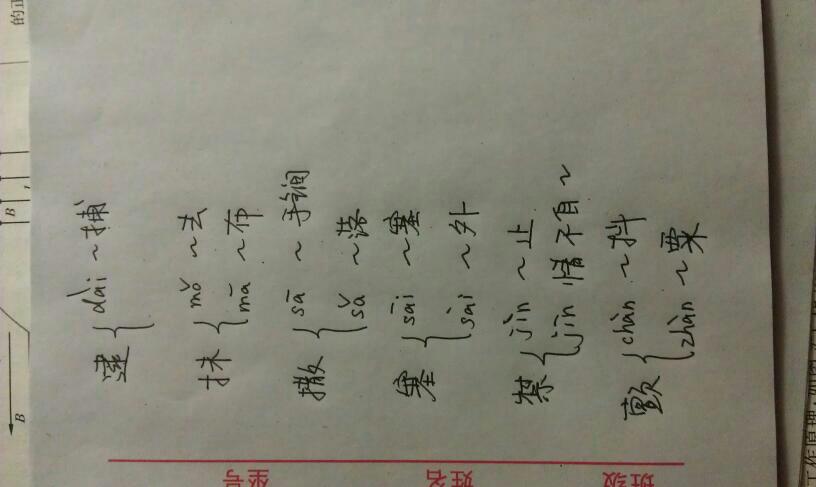 逮{dài ~捕
抹{mǒ ~去
mā ~布
撒{sā ~手锏
sǎ ~落
塞{sāi ~塞
sài ~外
禁{jìn ~止
jīn 情不自~
颤{chàn ~抖
zhàn ~栗
班级 姓名 坐号
B
B
工作原理:如图